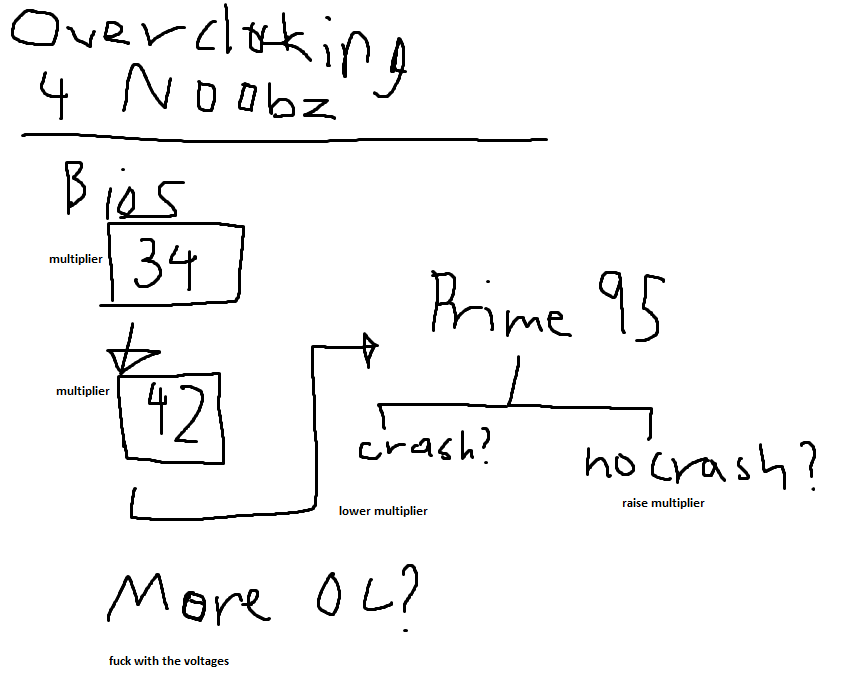 Overclocking
4 Noobz
Bios
multiplier 34
multiplier 42
Prime 95
crash?
lower multiplier
no crash?
raise multiplier
More OC?
fuck with the voltages